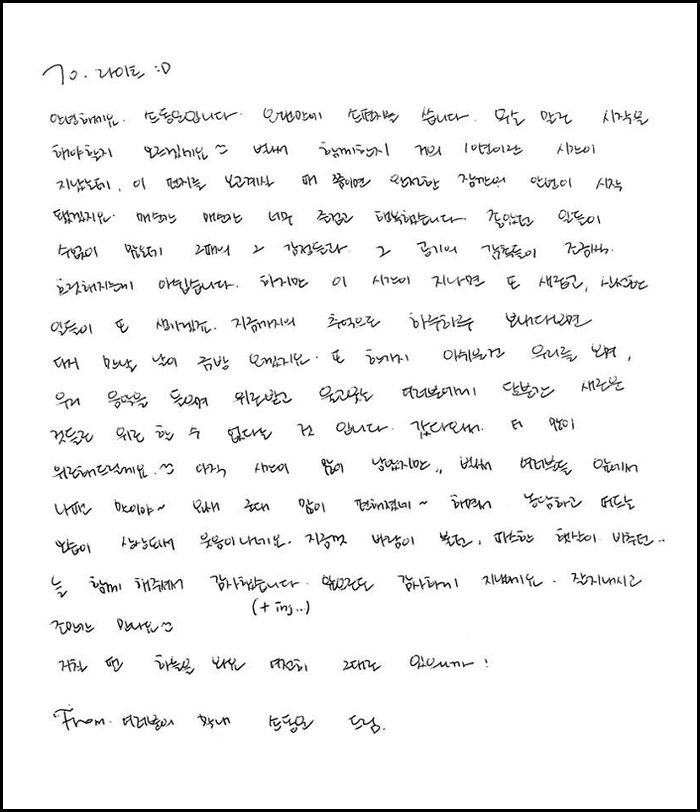 To. 라이트 :D
안녕하세요. 손동운입니다. 오랜만에 손편지를 씁니다. 무슨 말로 시작을
해야할지 모르겠네요 :) 벌써 함께한지 거의 10년이란 시간이
지났는데, 이 편지를 보고계실 때 쯤이면 완전한 잠깐의 안녕이 시작
됐겠지요. 매순간 매순간 너무 즐겁고 행복했습니다. 좋았던 일들이
수없이 많은데 그때의 그 감정들과 그 공기의 감촉들이 조금씩
흐릿해지는게 아쉽습니다. 하지만 이 시간이 지나면 또 새롭고, 신선한
일들이 또 생기겠죠. 지금까지의 추억으로 하루하루 보내다보면
다시 만날 날이 금방 오겠지요. 또 한가지 아쉬운건 우리를 보며,
우리 음악을 들으며 위로받고 울고웃는 여러분에게 당분간 새로운
것들로 위로 할 수 없다는 것 입니다. 갔다와서 더 많이
위로해드릴게요. :) 아직 시간이 많이 남았지만.. 벌써 여러분들 앞에서
나때는 말이야~ 요새 군대 많이 편해졌네~ 하면서 농담하고 떠드는
모습이 상상돼서 웃음이나네요. 지금껏 바람이 불던, 따스한 햇살이 비추던..
늘 함께 해주셔서 감사했습니다. 앞으로도 감사하게 지낼게요. 잘지내시고
(+ ing..)
조만간 만나요 :)
지칠 땐 하늘을 봐요 여전히 그대로 있으니까!
From. 여러분의 막내 손동운 드림.